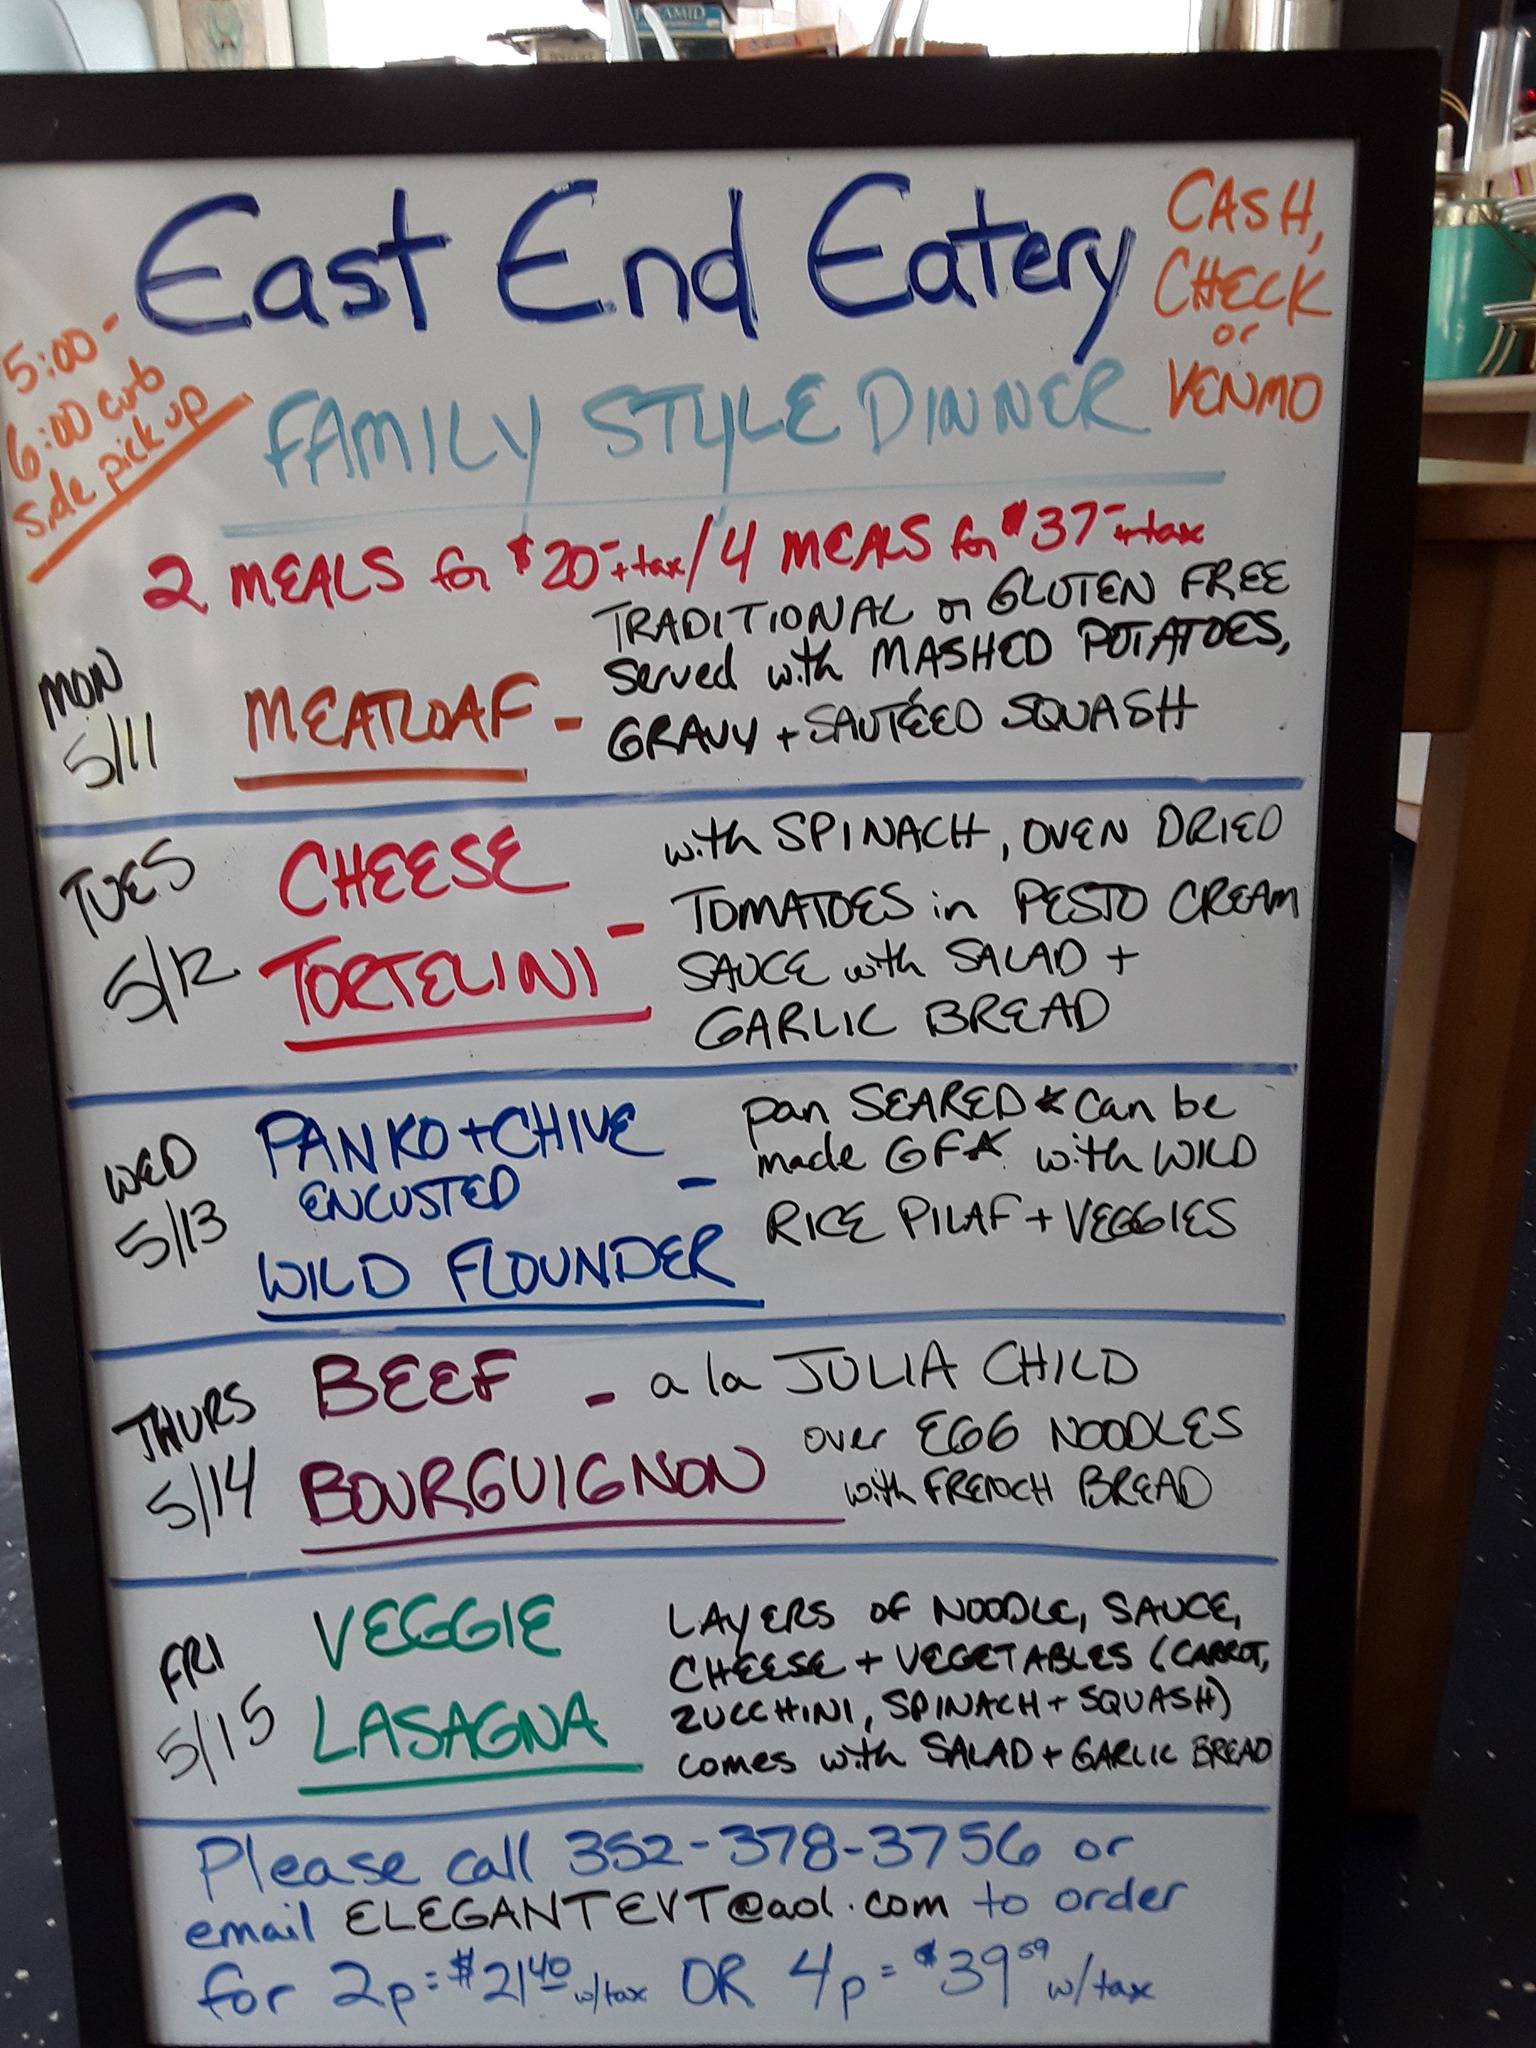 PYRAMID
East End Eatery
CASH,
CHECK
or
VENMO
5:00-
6:00 curb
side pick up
FAMILY STYLE DINNER
2 MEALS for $20- +tax / 4 MEALS for $37- +tax
MON
5/11
MEATLOAF -
TRADITIONAL or GLUTEN FREE
served with MASHED POTATOES,
GRAVY + SAUTÉED SQUASH
TUES
5/12
CHEESE
TORTELINI -
with SPINACH, OVEN DRIED
TOMATOES in PESTO CREAM
SAUCE with SALAD +
GARLIC BREAD
WED
5/13
PANKO + CHIVE
ENCUSTED -
WILD FLOUNDER
pan SEARED * can be
made GF * with WILD
RICE PILAF + VEGGIES
THURS
5/14
BEEF -
BOURGUIGNON
a la JULIA CHILD
over EGG NOODLES
with FRENCH BREAD
FRI
5/15
VEGGIE
LASAGNA
LAYERS OF NOODLE, SAUCE,
CHEESE + VEGETABLES (CARROT,
ZUCCHINI, SPINACH + SQUASH)
comes with SALAD + GARLIC BREAD
Please call 352-378-3756 or
email ELEGANTEVT@aol.com to order
for 2p = $21.40 w/tax OR 4p = $39.59 w/tax